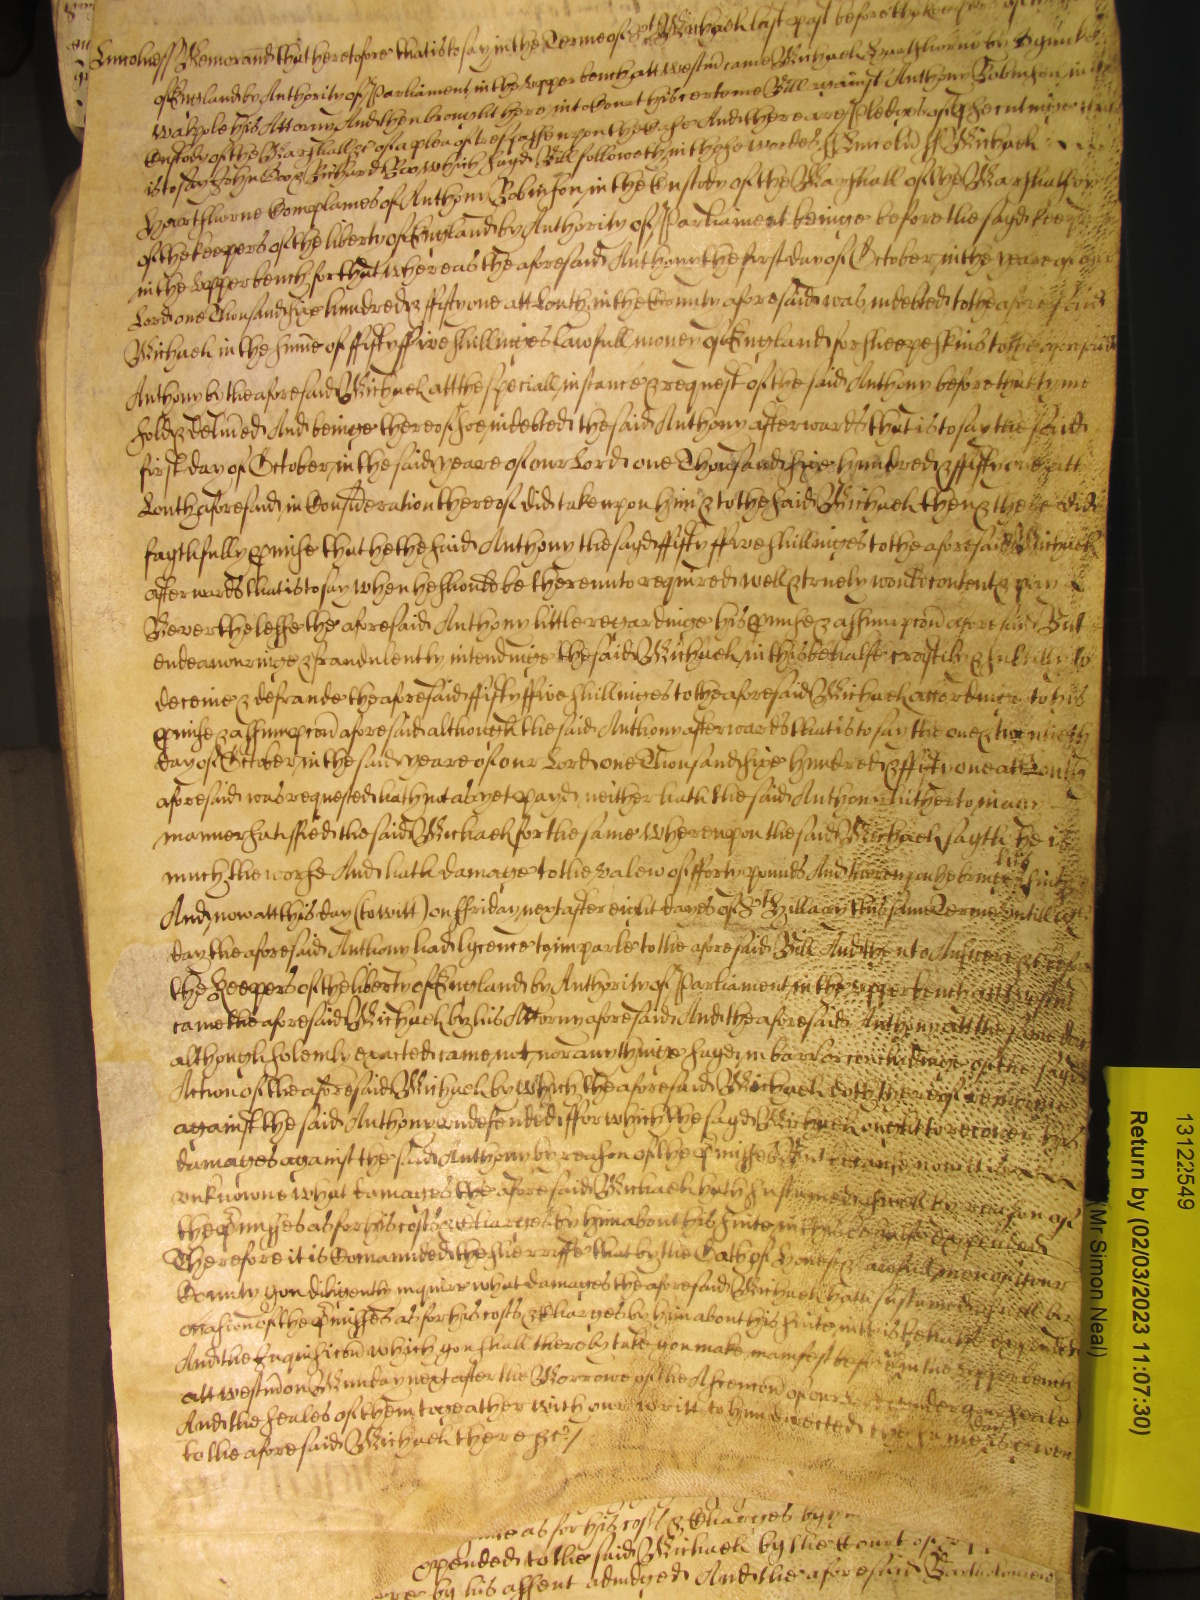 Lincoln ss Memorand that heretofore that is to say in the Terme of St Michael last past before the keepers of the
of England by Authority of Parliament in the upper bench att Westm came Michael Hearthorne by
Walpole his Attorny And then brought here into Court his certeine Bill against Anthony Robinson in
Custody of the Marshall &c of a plea of trespasse upon the Case And there are pledges of
is to say John Doo & Richard Roo which sayd Bill followeth in these wordes ss Lincoln ss Michael
Hearthorne Complaines of Anthony Robinson in the Custody of the Marshall of the Marshalsey
of the keepers of the liberty of England by Authority of Parliament beinge before the sayd keepers
in the upper bench for that whereas the aforesaid Anthony the first day of October in the yeare of our
Lord one Thousand sixe hundred & fifty one att Louth in the County aforesaid was indebted to the aforesaid
Michael in the summe of fifty five shillinges lawfull money of England for sheepeskins to the aforesaid
Anthony by the aforesaid Michael att the speciall instance & request of the said Anthony before that tyme
sold & delivred And beinge thereof soe indebted the said Anthony afterwards that is to say the said
first day of October in the said yeare of our Lord one Thousand sixe hundred & fifty one att
Louth aforesaid in Consideration thereof did take upon him & to the said Michael then & there did
faythfully pmise that he the said Anthony the sayd fifty five shillinges to the aforesaid Michael
afterwards that is to say when he should be thereunto required well & truely would content & pay
Neverthelesse the aforesaid Anthony little regardinge his pmise & assumpcon aforesaid But
endeavouringe & fraudulently intendinge the said Michael in this behalfe craftily & subtilly to
deceive & defraude the aforesaid fifty five shillinges to the aforesaid Michael accordinge to his
pmise & assumpcon aforesaid although the said Anthony afterwards that is to say the one & twentieth
day of October in the said yeare of our Lord one Thousand sixe hundred & fifty one att Louth
aforesaid was requested hath not as yet payd neither hath the said Anthony hitherto in any
manner satisfied the said Michael for the same Whereupon the said Michael sayth he is
much the worse And hath damage to the valew of forty pounds And thereupon he bringes his suite
And now att this day (to witt) on ffriday next after eight dayes of St Hillary this same Terme untill wch
day the aforesaid Anthony had lycence to imparle to the aforesaid Bill And then to Answere &c before
the Keepers of the liberty of England by Authority of Parliament in the upper bench att Westm
came the aforesaid Michael by his Attorny aforesaid And the aforesaid Anthony att the same day
although solemly exacted came not nor any thinge sayd in barr or concludinge of the sayd
Action of the aforesaid Michael by which the aforesaid Michael doth thereof remaine
against the said Anthony undefended ffor which the sayd Michael ought to recover his
damages against the said Anthony by reason of the pmisses But because now it is
unknowne what damages the aforesaid Michael hath sustained aswell by reason of
the pmisses as for his costs & Charges by him about his suite in this behalfe expended
Therefore it is Comaunded the Sherriffe that by the Oath of honest & lawfull men of your
County you diligently inquire what damages the aforesaid Michael hath sustained aswell by
occasion of the pmisses as for his costs & Charges by him about his suite in this behalfe expended
And the Inquisicon which you shall thereby take you make manifest before us in the upper bench
att Westm on Munday next after the Morrowe of the Ascencon of our Lord under your seale
And the seales of them togeather with our writt to him directed the same day is given
to the aforesaid Michael there &c /
as for his costs & Charges by
expended to the said Michael by the Court
by his assent adiudged And the aforesaid Bartholomew
13122549
Return by (02/03/2023 11:07:30)
(Mr Simon Neal)